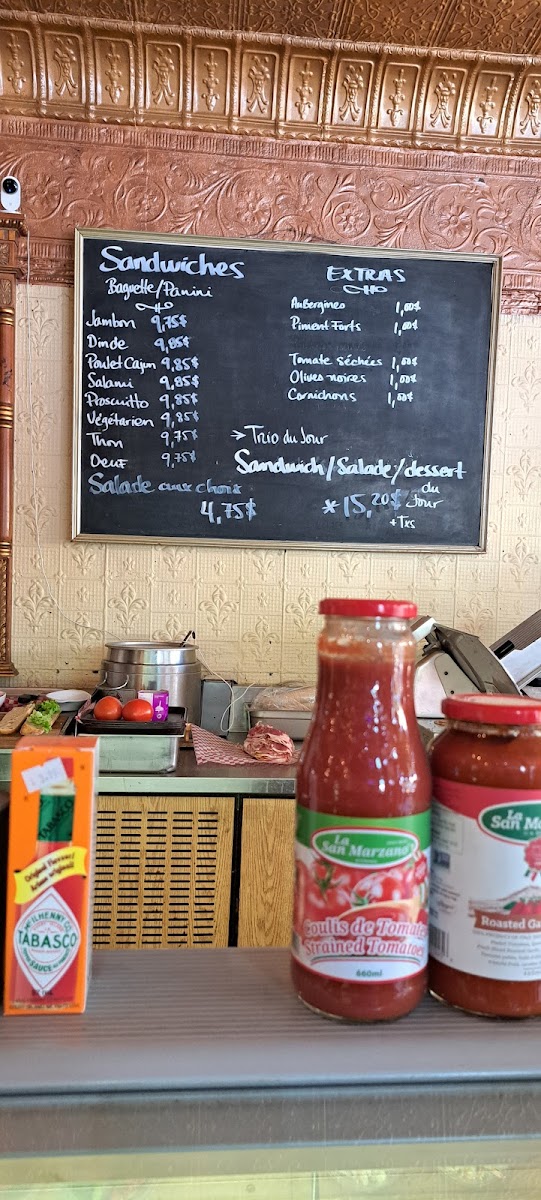 Sandwiches
Baguette/Panini
Jambon 9,75$
Dinde 9,85$
Poulet Cajun 9,85$
Salami 9,85$
Proscuitto 9,85$
Végétarien 9,85$
Thon 9,75$
Oeuf 9,75$
Salade aux choix
4,75$
EXTRAS
Aubergines 1,00$
Piment Forts 1,00$
Tomate Séchées 1,00$
Olives noires 1,00$
Cornichons 1,00$
→ Trio du Jour
Sandwich/Salade/dessert
du
Jour
*15,20$
+Txs
TABASCO
Original Flavour
McILHENNY CO.
TABASCO
La
San Marzano
Coulis de Tomates
Strained Tomatoes
660ml
La
San Ma
Roasted Ga